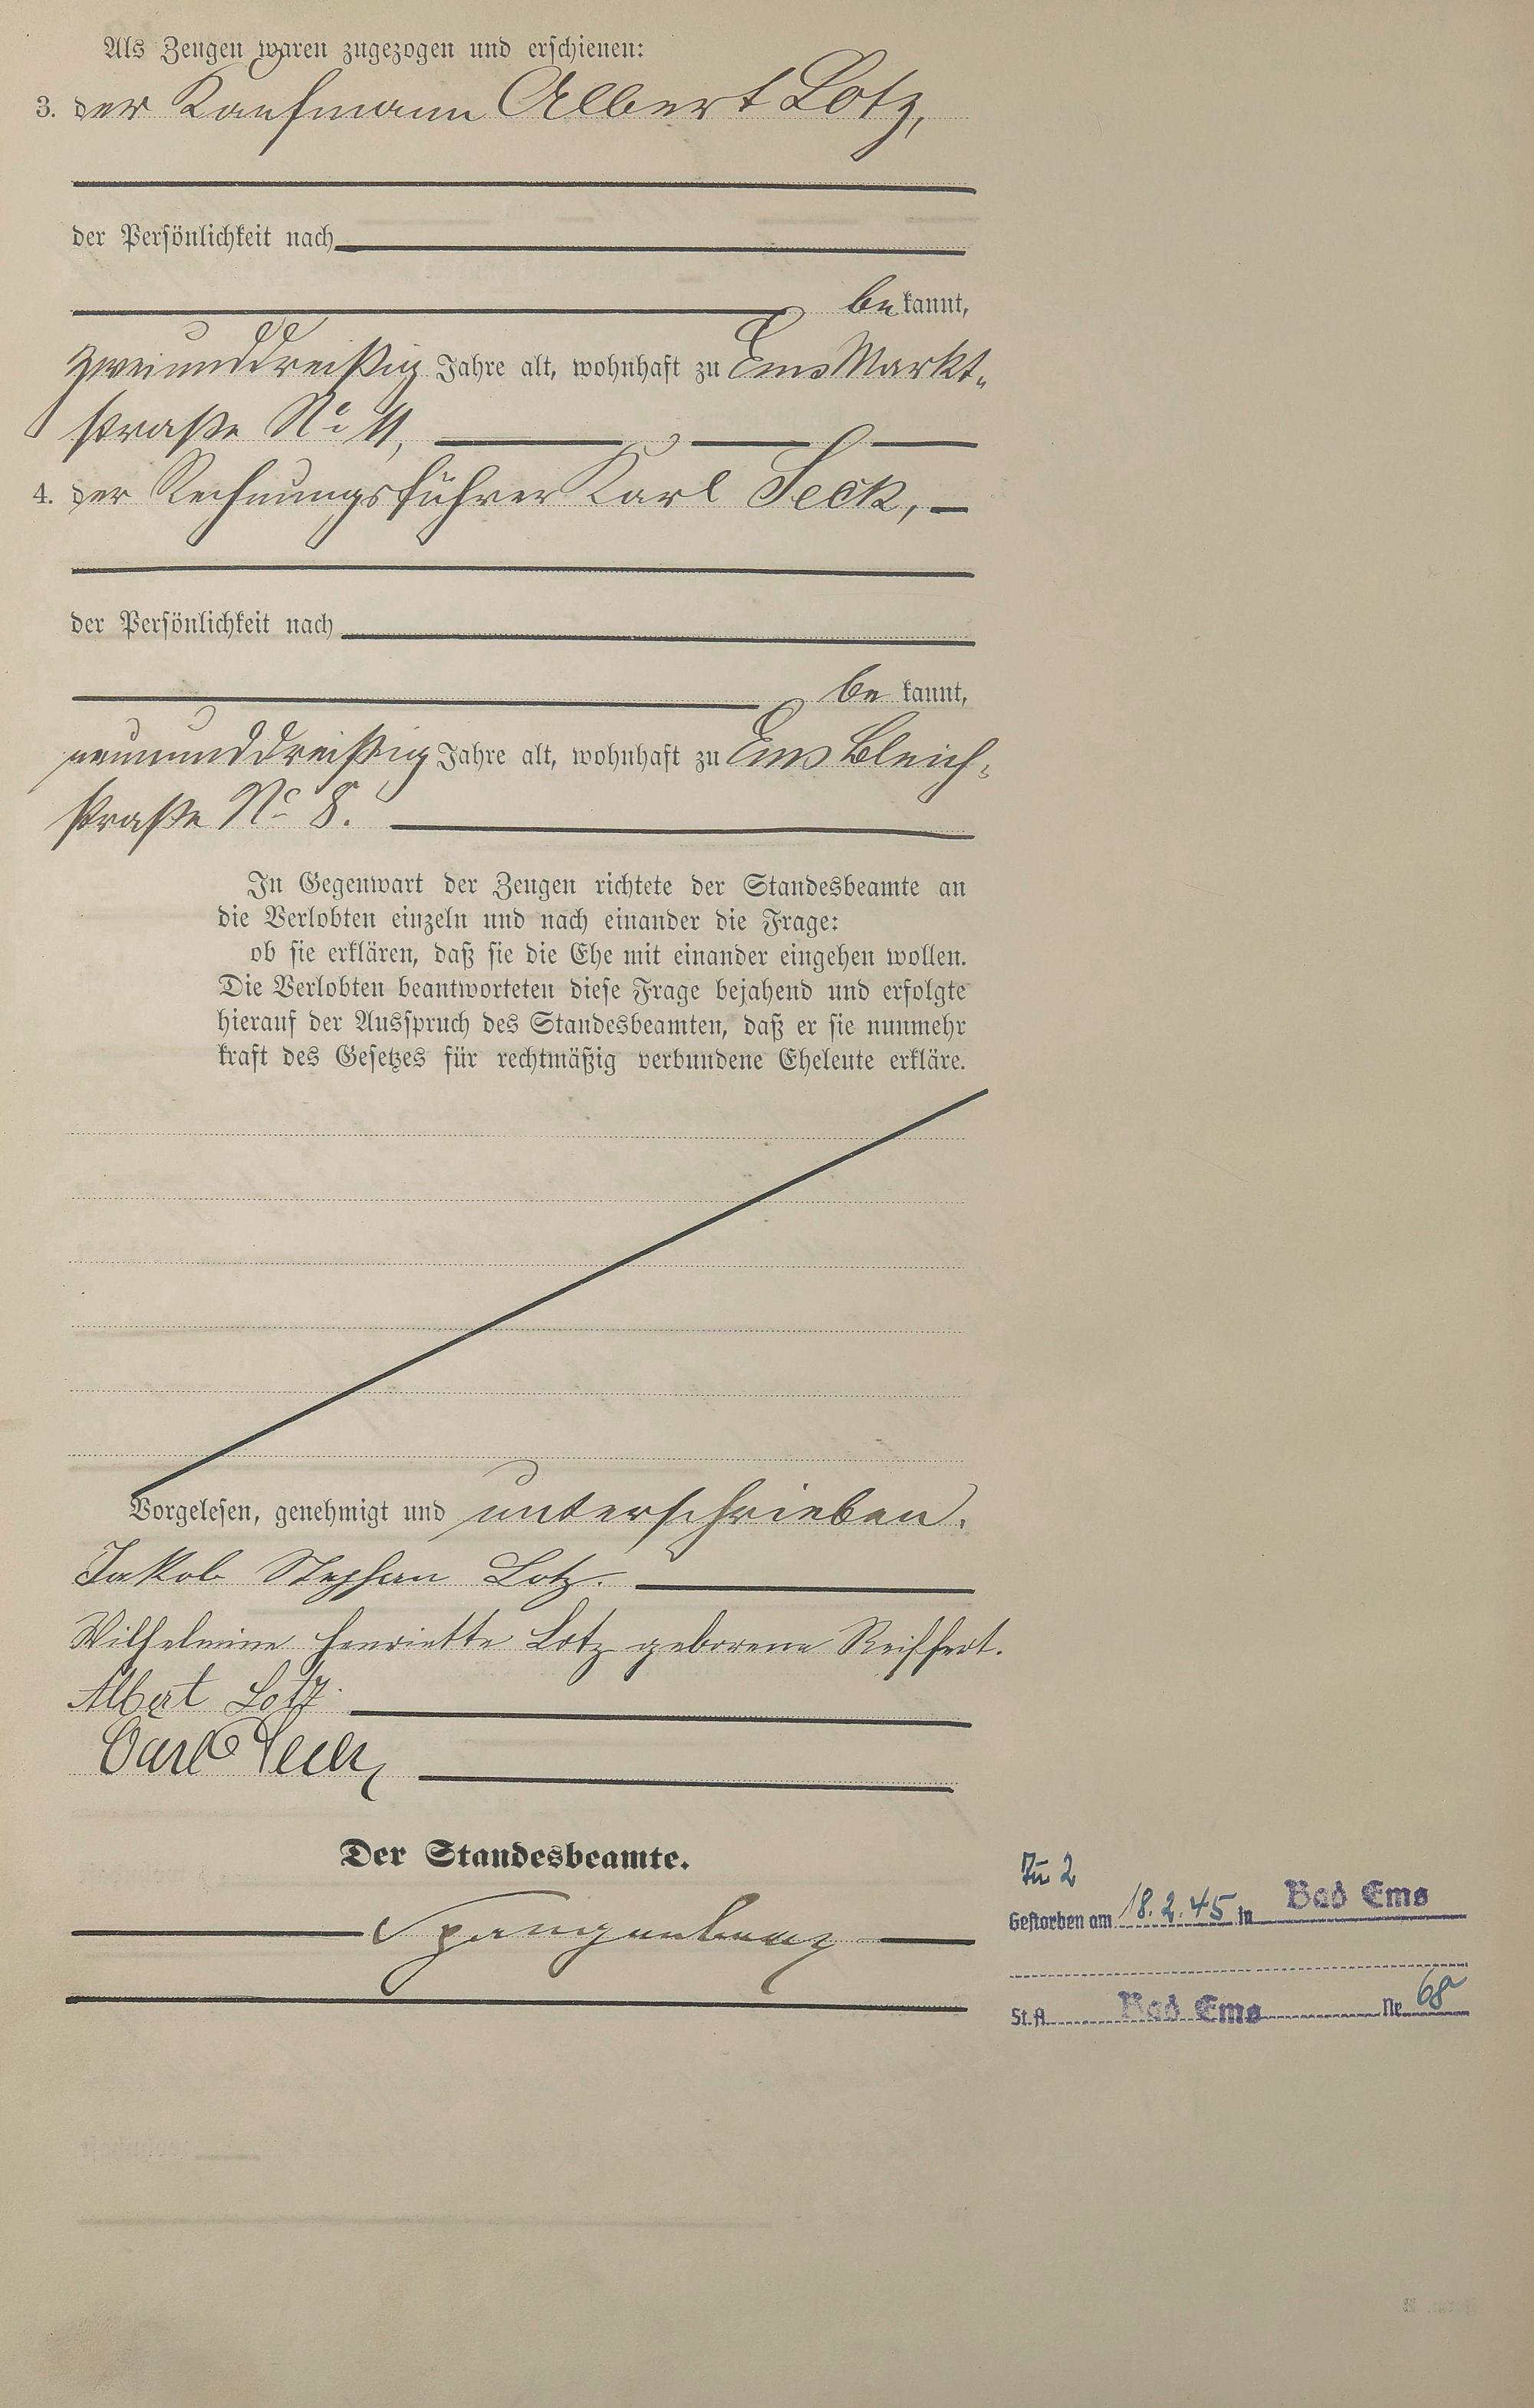 Als Zeugen waren zugezogen und erschienen:
3. der Kaufmann Albert Lotz,
der Persönlichkeit nach
bekannt,
zweiunddreißig Jahre alt, wohnhaft zu Ems Markt-
straße No 11,
4. der Rechnungsführer Karl Seck,
der Persönlichkeit nach
be kannt,
neununddreißig Jahre alt, wohnhaft zu Ems Bleich-
straße No 8.
In Gegenwart der Zeugen richtete der Standesbeamte an
die Verlobten einzeln und nach einander die Frage:
ob sie erklären, daß sie die Ehe mit einander eingehen wollen.
Die Verlobten beantworteten diese Frage bejahend und erfolgte
hierauf der Ausspruch des Standesbeamten, daß er sie nunmehr
kraft des Gesetzes für rechtmäßig verbundene Eheleute erkläre.
Vorgelesen, genehmigt und unterschrieben.
Jakob Stephan Lotz.
Wilhelmine Henriette Lotz geborene Reiffert.
Albert Lotz.
Carl Seck
Der Standesbeamte.
Spangenberg
Zu 2
Gestorben am 18.2.45 in Bad Ems
St.A. Bad Ems Nr. 68